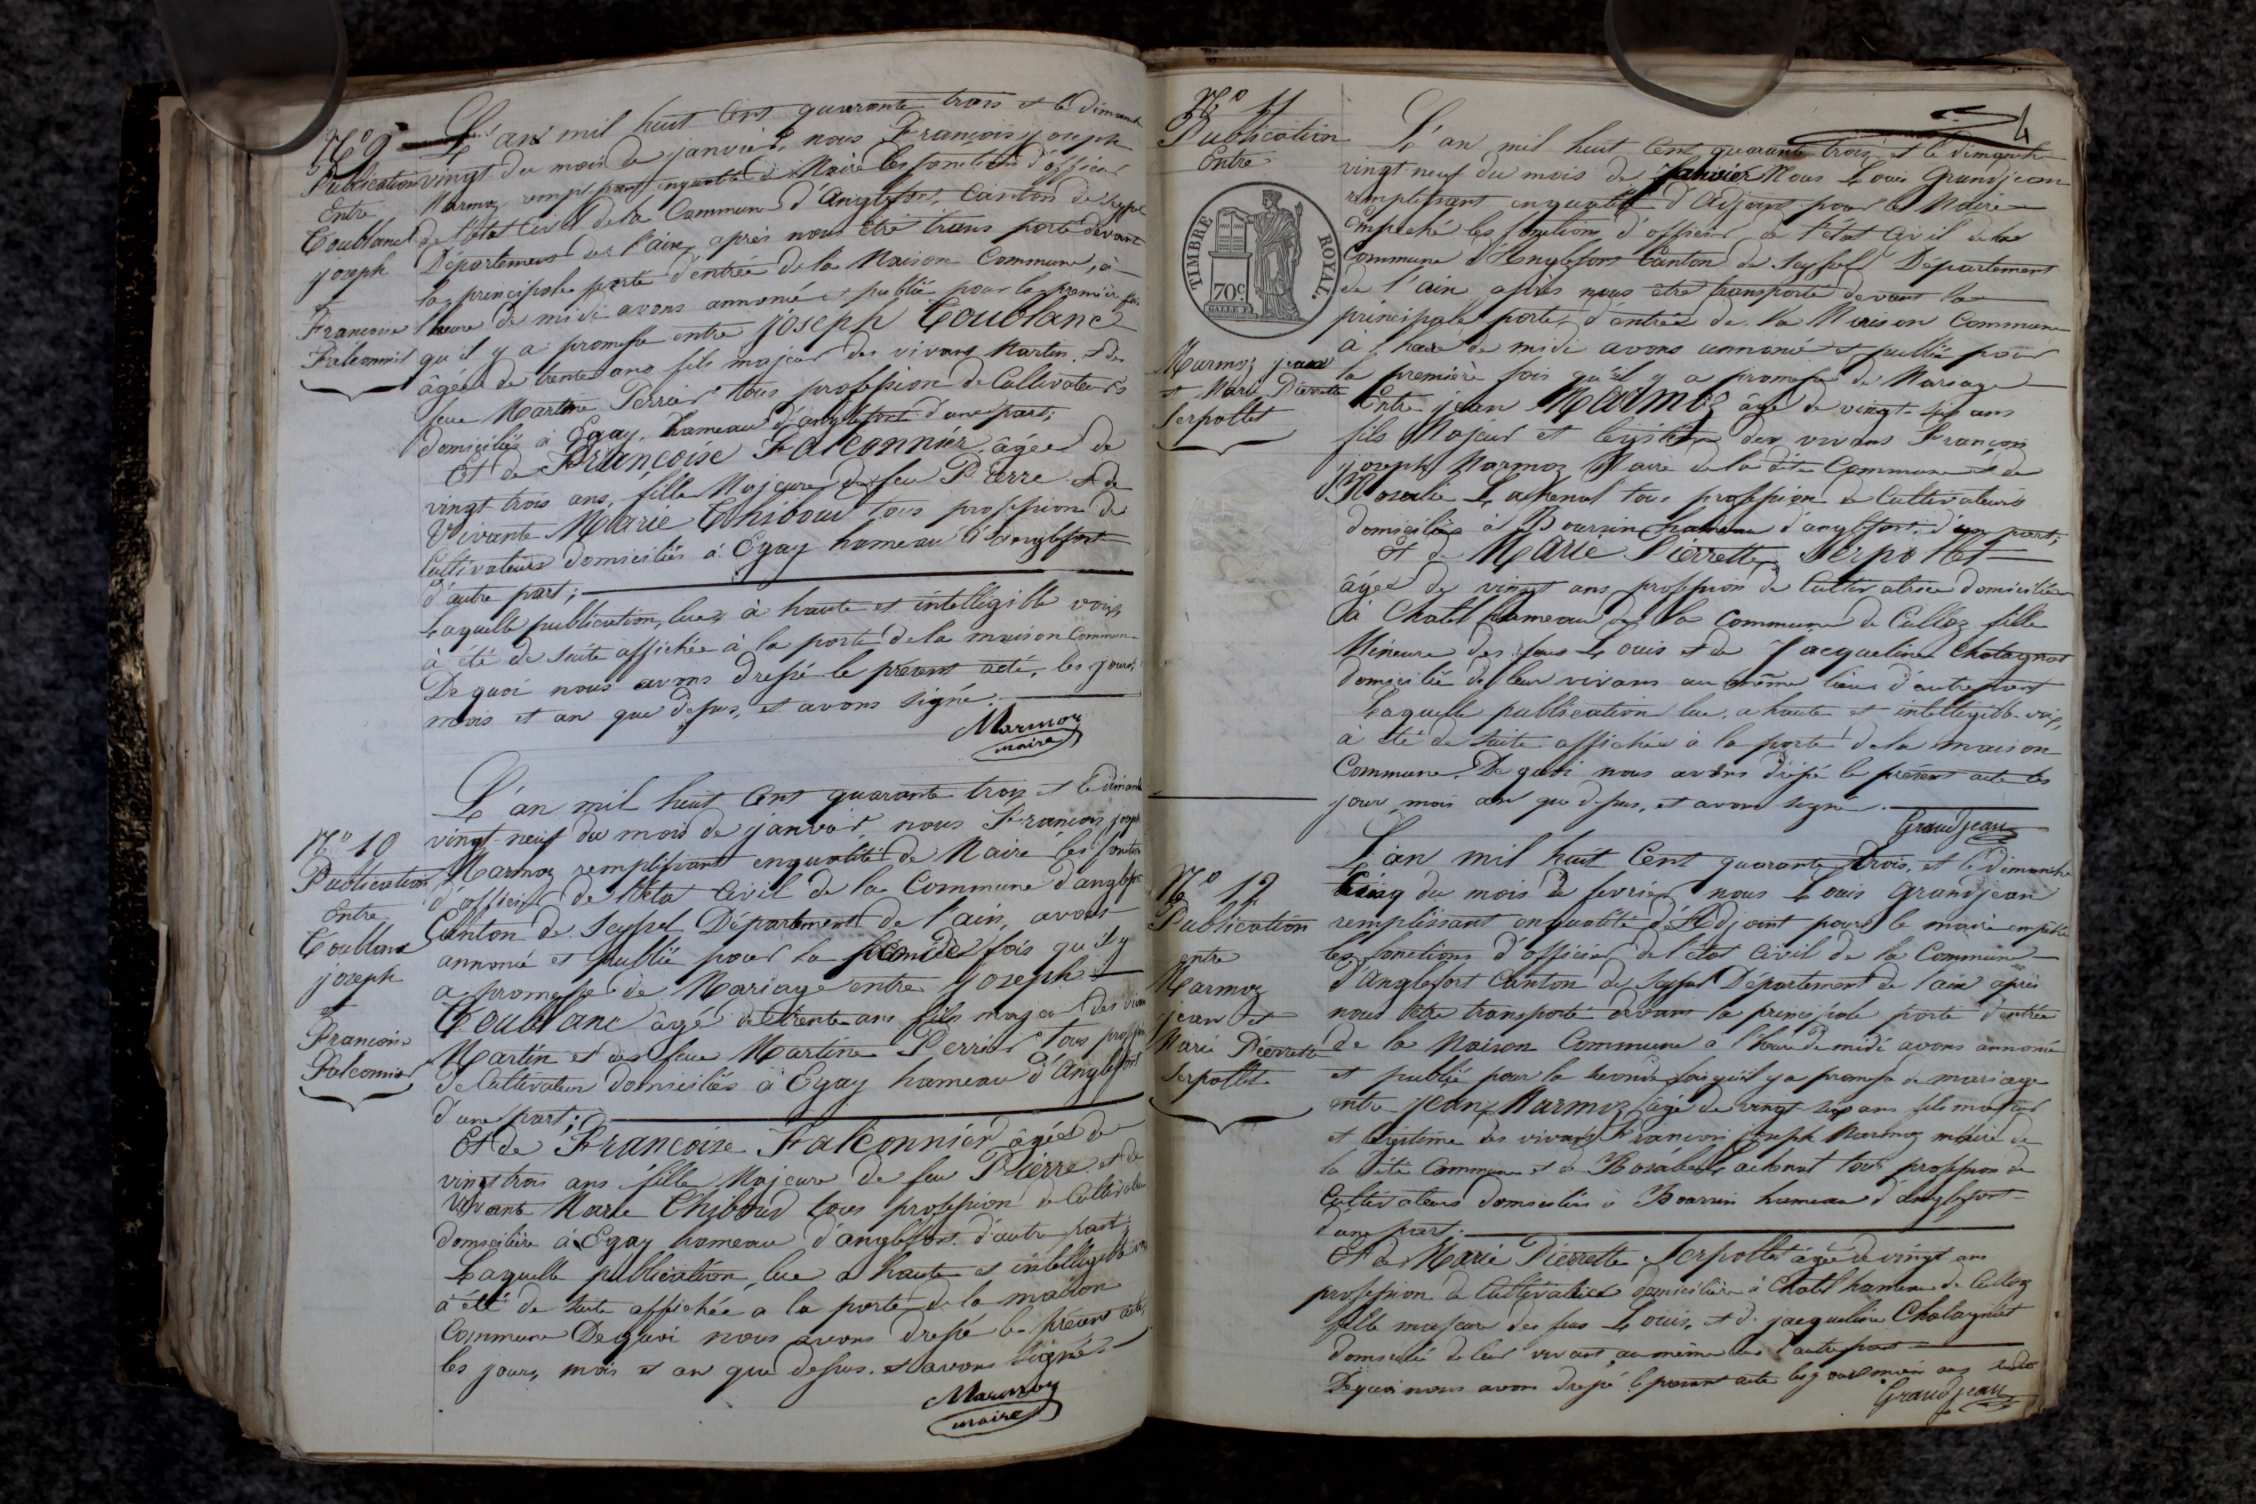 N° 9
Publication
Entre
Coublanc
joseph
et
Françoise
Falconnier
L'an mil huit Cent quarante trois et le dimanche
vingt du mois de janvier, nous François joseph
Marmoz remplissant enqualité de Maire les fonctions d'officier
de l'état Civil de la Commune d'Anglefort, Canton de Seyssel
Département de l'ain, après nous être trans porté devant
la principale porte d'entrée de la Maison Commune, à
l'heure de midi avons annoncé et publié pour la première fois
qu'il y a promesse entre joseph Coublanc
âgée de trente ans fils majeur des vivant Martin et de
feue Martine Perrier tous profession de Cultivateurs
domiciliés à Egay, hameau d'anglefort d'une part;
Et de Françoise Falconnier, âgée de
vingt trois ans, fille Majeure de feu Pierre et de
Vivante Marie Chiboud tous profession de
Cultivateurs domiciliés à Egay hameau d'anglefort
d'autre part;
Laquelle publication, lue, à haute et intelligible voix,
à été de suite affichée à la porte de la maison Commune
De quoi nous avons dressé le présent acte, les jour,
mois et an que dessus, et avons signé.
Marmoz
maire
N° 10
Publication
Entre
Coublanc
joseph
et
Françoise
Falconnier
L'an mil huit Cent quarante trois et le dimanche
vingt-neuf du mois de janvier, nous François joseph
Marmoz remplissant enqualité de Maire les fonctions
d'officier de l'état Civil de la Commune d'anglefort
Canton de Seyssel Département de l'ain, avons
annoncé et publié pour la fois qu'il y
a promesse de Mariage entre joseph
Coublanc âgé de trente ans fils majeur des vivant
Martin et de feue Martine Perrier tous profession
de Cultivateur domiciliés à Egay hameau d'Anglefort
d'une part;
Et de Françoise Falconnier âgée de
vingt trois ans fille Majeure de feu Pierre et de
vivante Marie Chiboud tous profession de Cultivateur
domiciliée à Egay hameau d'anglefort d'autre part;
Laquelle publication, lue a haute et intelligible voix
à été de suite affichée a la porte de la maison
Commune De quoi nous avons dressé le présent acte,
les jour, mois et an que dessus. et avons signés
Marmoz
maire
4
N° 11
Publication
Entre
TIMBRE ROYAL
70 c.
Marmoz jean
et Marie Pierrette
Serpollet
L'an mil huit Cent quarante trois, et le dimanche
vingt neuf du mois de Janvier Nous Louis Grandjean
remplissant enqualité d'Adjoint pour le Maire
Empeché les fonctions d'officier de l'état Civil de la
Commune d'Anglefort Canton de Seyssel Département
de l'ain après nous être transporté devant la
principale porte, d'entrée de la Maison Commune
à l'heure de midi avons annoncé et publié pour
la première fois qu'il y a promesse de Mariage
Entre jean Marmoz âgé de vingt-six ans
fils Majeur et légitime des vivans François
joseph Marmoz Maire de la dite Commune et de
Rosalie Lathenal tous profession de Cultivateurs
domiciliés à Boursin hameau d'anglefort d'une part;
Et de Marie Pierrette Serpollet
âgée de vingt ans profession de Cultivatrice domiciliée
à Chatel hameau de la Commune de Culloz fille
Mineure des feus Louis et de Jacqueline Chatagnat
domicilié de leur vivans au même lieu d'autre part
Laquelle publication lue, a haute et intelligible voix,
à été de suite affichée à la porte de la maison
Commune. De quoi nous avons dressé le présent acte les
jour, mois an que dessus, et avons signé.
Grandjean
N° 12
Publication
entre
Marmoz
jean et
Marie Pierrette
Serpollet
L'an mil huit Cent quarante trois, et le dimanche
Cinq du mois de fevrier nous Louis Grandjean
remplissant enqualité d'Adjoint pour le maire empeché
les fonctions d'officier de l'état Civil de la Commune
d'Anglefort Canton de Seyssel Département de l'ain après
nous etre transporté devant la principale porte d'entrée
de la Maison Commune a l'heure de midi avons annoncé
et publié pour la seconde fois qu'il y a promesse de mariage
entre jean Marmoz âgé de vingt six ans fils majeur
et légitime des vivans François joseph Marmoz maire de
la dite Commune et de Lathenal tous profession de
Cultivateurs domiciliés à Boursin hameau d'anglefort
d'une part.
Et de Marie Pierrette Serpollet âgée de vingt ans
profession de Cultivatrice domiciliée à Chatel hameau de Culloz
fille majeure des feus Louis, et de jacqueline Chatagnat
domicilié de leur vivant au même lieu d'autre part
De quoi nous avons dressé le présent acte les jour mois an
Grandjean